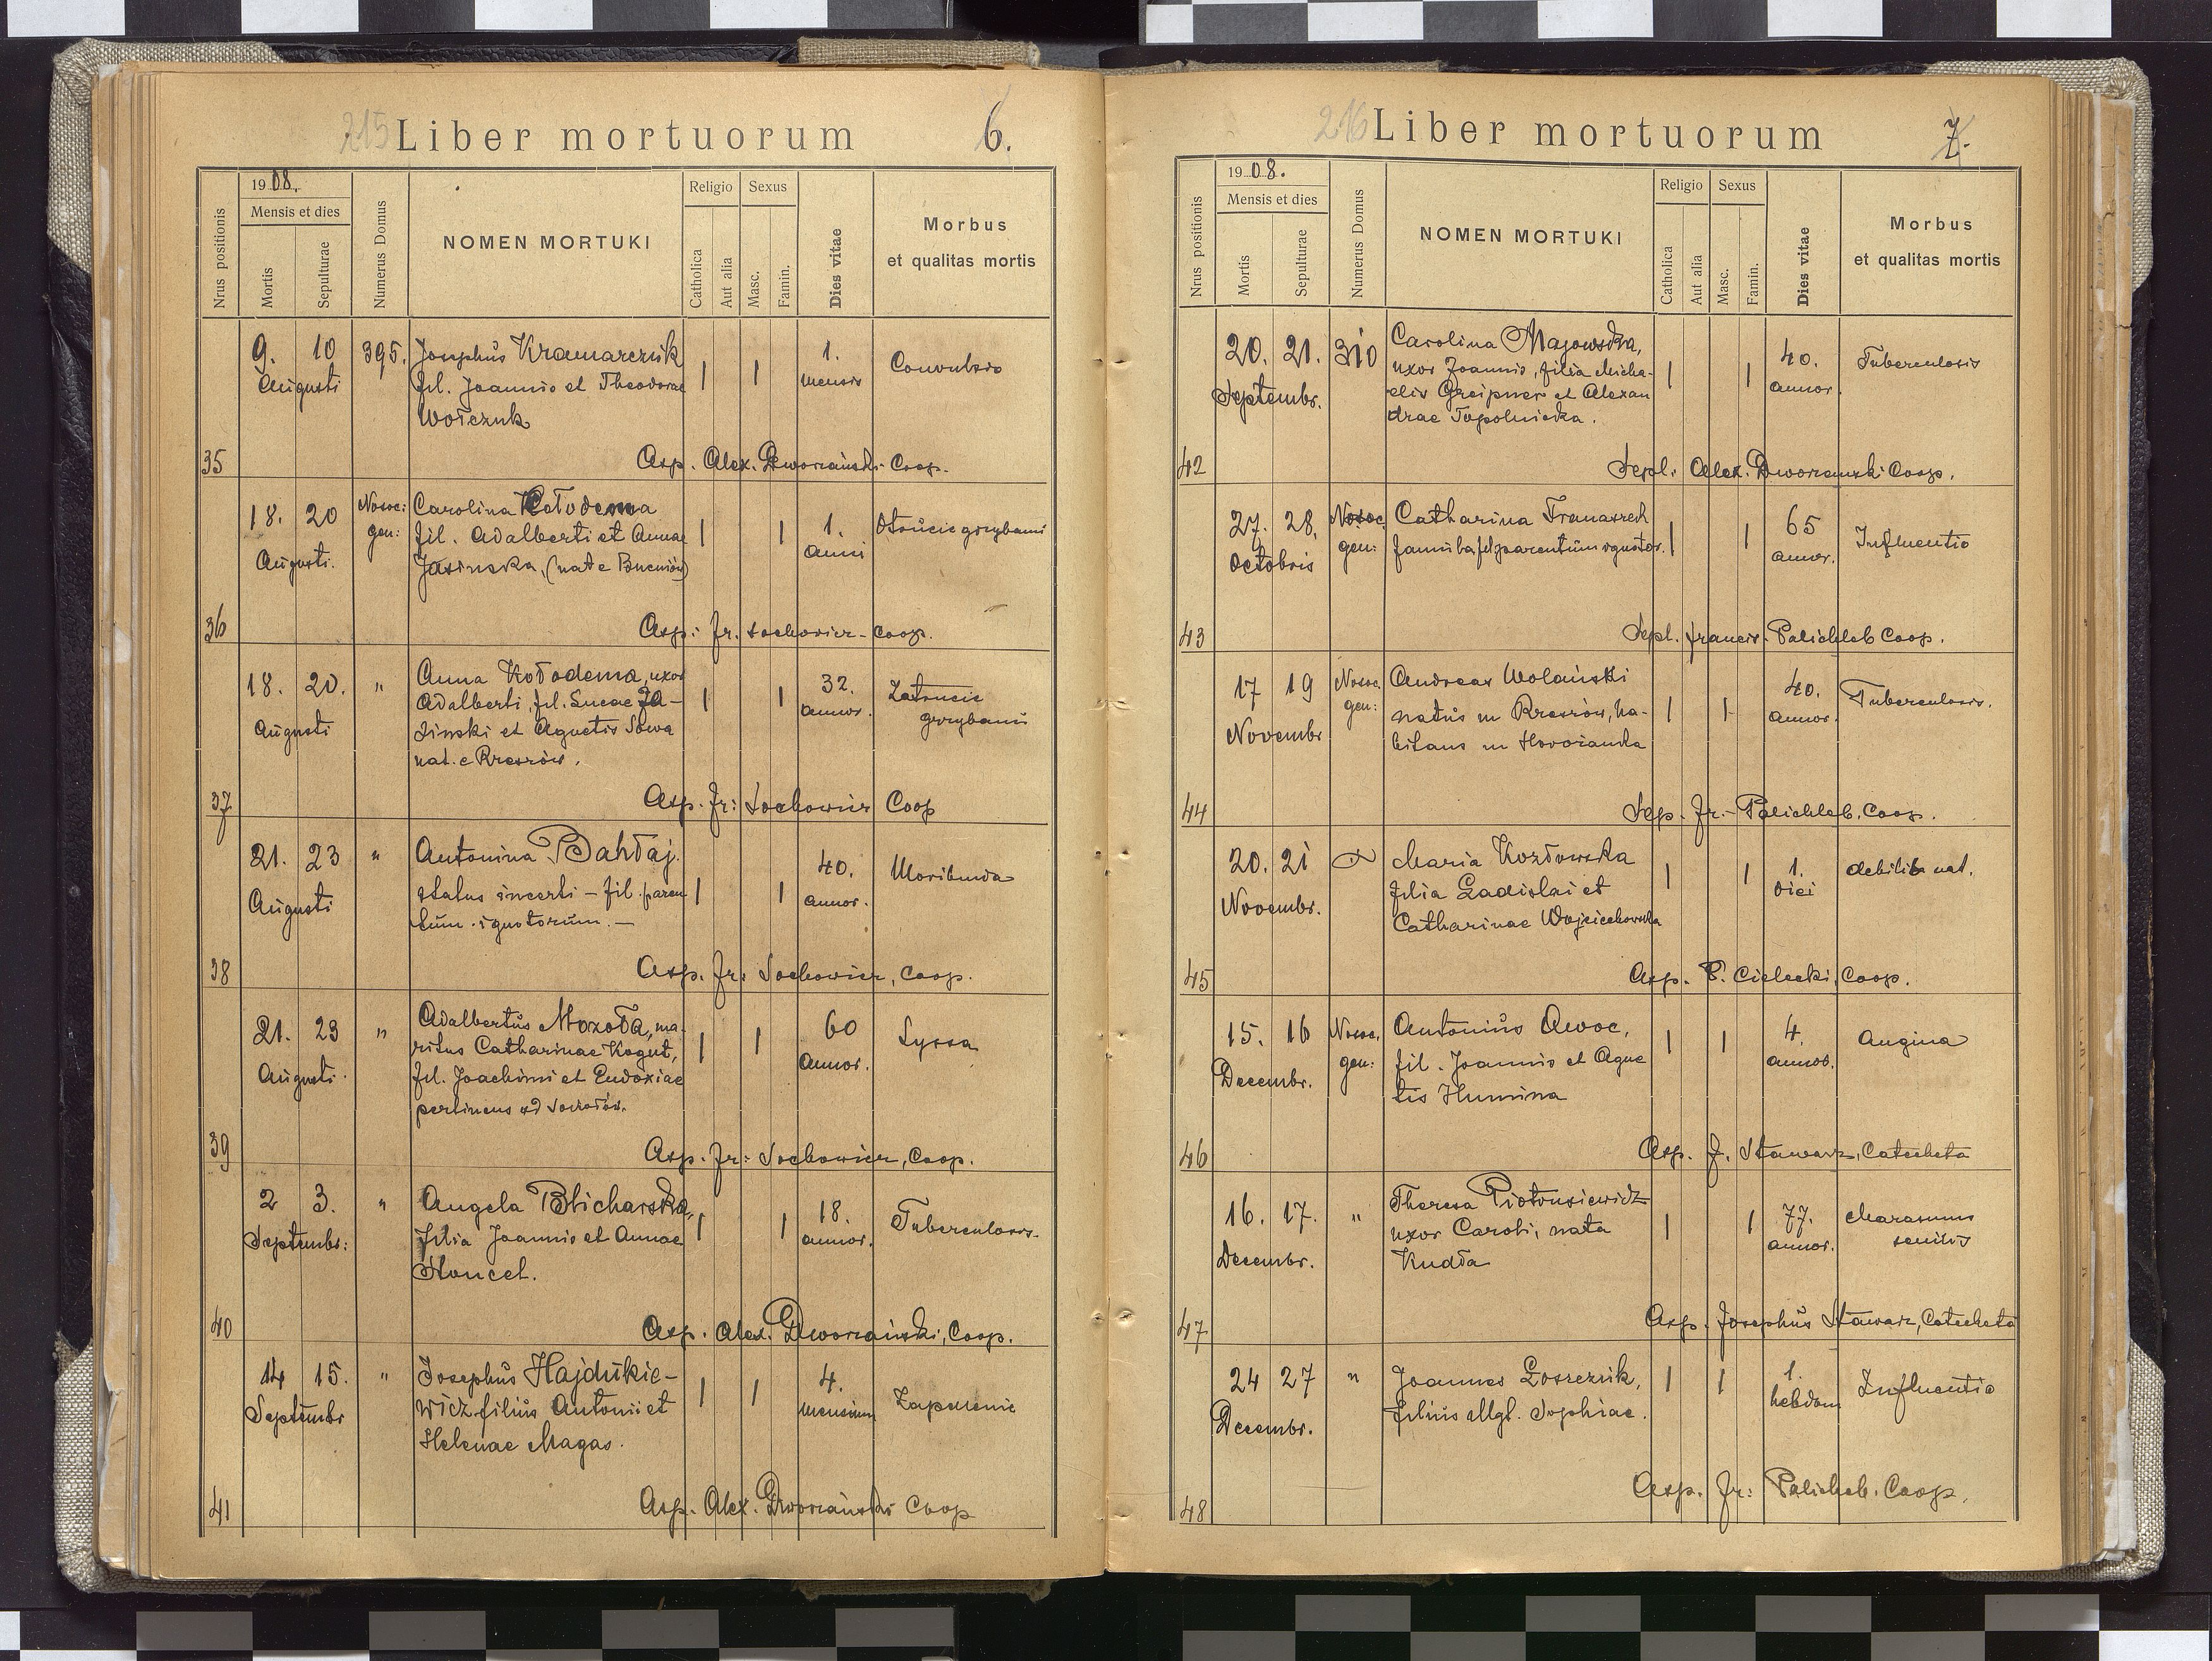 215 Liber mortuorum 6.
Nrus positionis
1908.
Mensis et dies
Mortis
Sepulturae
Numerus Domus
NOMEN MORTUKI
Religio
Catholica
Aut alia
Sexus
Masc.
Famin.
Dies vitae
Morbus
et qualitas mortis
9. 10 395. Josephus Kramarczuk 1 1 1. Convulsio
Augusti fil. Joannis et Theodorae mensis
Wołczuk
35 Asp. Alex. Dworzański Coop.
18. 20 Nosoc: Carolina Kołodema 1 1 1. Otrucie grzybami
Augusti. gen: fil. Adalberti et Annae anni
Jasinska, (nat e Bucniów)
36 Asp: Fr. Sochowicz - Coop.
18. 20. " Anna Kołodema, uxor 1 1 32. Zatrucie
Augusti Adalberti, fil. Lucae Ja- annor. grzybami
sinski et Agnetis Sowa
nat. e Rzeszów.
37 Asp. Fr: Sochowicz Coop
21. 23 " Antonina Bahłaj. 1 1 40. Moribunda
Augusti status incerti - fil. paren annor.
tum ignotorum. -
38 Asp. Fr: Sochowicz, Coop.
21. 23 " Adalbertus Mozoła, ma- 1 1 60 Lyssa
Augusti. ritus Catharinae Kogut, annor.
fil. Joachimi et Eudoxiae
pertinens ad
39 Asp. Fr: Sochowicz, Coop.
2 3. " Angela Blicharska, 1 1 18. Tuberculosis.
Septembr: filia Joannis et Annae annor.
Honcel.
40 Asp. Alex. Dworzański, Coop.
14 15. " Josephus Hajdukie- 1 1 4. Zapalenie
Septembr wicz filius Antonii et mensium
Helenae Magas.
41 Asp. Alex. Dworzański Coop
216 Liber mortuorum 7.
Nrus positionis
1908.
Mensis et dies
Mortis
Sepulturae
Numerus Domus
NOMEN MORTUKI
Religio
Catholica
Aut alia
Sexus
Masc.
Famin.
Dies vitae
Morbus
et qualitas mortis
20. 21. 310 Carolina Majowska, 1 1 40. Tuberculosis
Septembr. uxor Joannis, filia Micha- annor.
elis Greipner et Alexan
drae Topolnicka.
42 Sepl. Alex. Dworzanski Coop.
27. 28. Nosoc Catharina 1 1 65 Influentio
Octobris gen: famula fil parentum ignotor. annor.
43 Sepl. Francis. Palichleb Coop.
17 19 Nosoc. Andreas Wolański 1 1 40. Tuberculosis.
Novembr gen: natus in Rzeszów, ha- annor.
bitans in Howorianka
44 Sep. Fr. Palichleb, Coop.
20. 21 Maria Kozłowska 1 1 1. debilit nat.
Novembr. filia Ladislai et diei
Catharinae Wojciechowska
45 Asp. P. Cielecki, Coop.
15. 16 Nosoc. Antonius Awoc, 1 1 4. Angina
Decembr. gen: fil. Joannis et Agne annor.
tis Humina
46 Asp. J. Stawarz, Catecheta
16. 17. " Theresa Piotrusiewicz 1 1 77. Marasmus
Decembr. uxor Caroli, nata annor. senilis
Kudła
47 Asp. Josephus Stawarz, Catecheta
24 27 " Joannes Łoszczuk, 1 1 1. Influentio
Decembr. filius Mgl. Sophiae. hebdom
48 Asp. Fr: Palichleb. Coop.